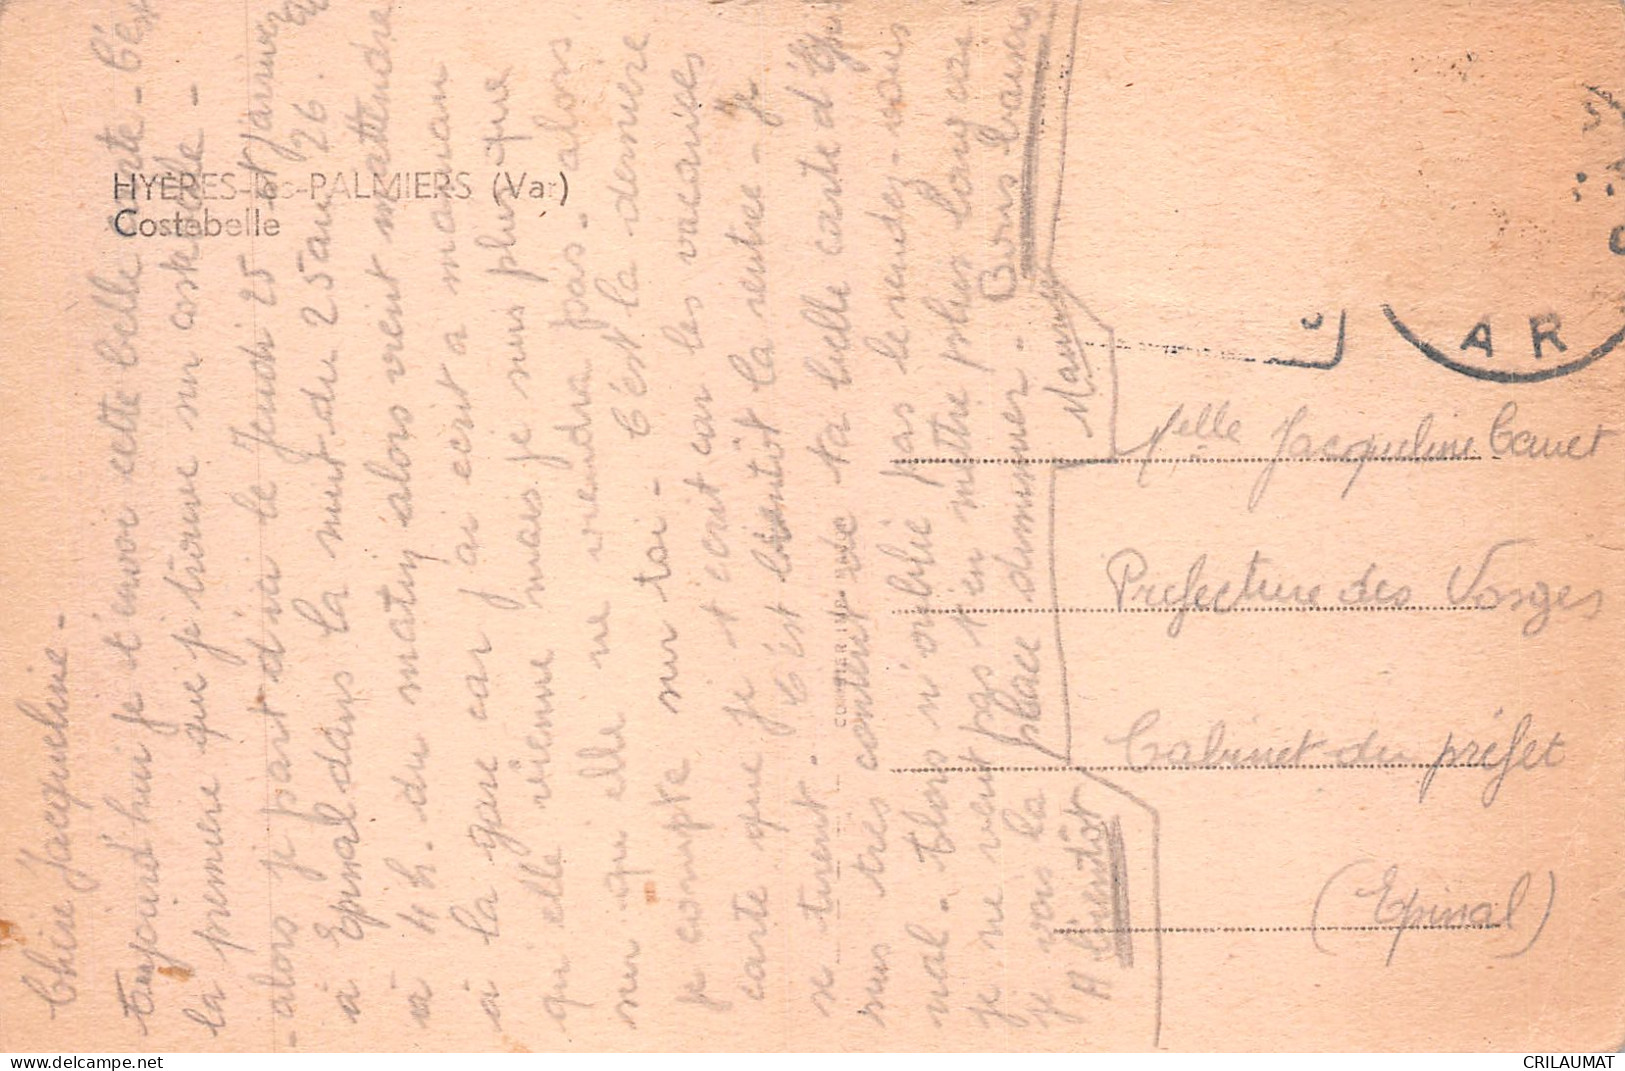 HYÈRES-les-PALMIERS (Var)
Costebelle
Chère Jacqueline -
Aujourd'hui je t'envoi cette belle carte - C'est
la première que je trouve sur costebelle -
- alors je part d'ici le Jeudi 25 et j'arrive
à Epinal dans la nuit du 25 au 26.
à 4 h. du matin, alors vient m'attendre
à la gare car j'ai ecrit a maman
qu'elle vienne mais je suis plus que
sur qu'elle ne viendra pas - alors
je compte sur toi - C'est la dernière
carte que je t'ecrit car les vacances
se tirent. C'est bientôt la rentrée - je
suis très content de ta belle carte d'Epi
nal - Alors n'oublie pas le rendez-vous
je ne veut pas t'en mettre plus long car
je vois la place diminuer -
A bientôt
Bons baisers
COMBIER IMP.
A R
Melle Jacqueline Canet
Prefecture des Vosges
Cabinet du préfet
(Epinal)
delcampe.net
CRILAUMAT